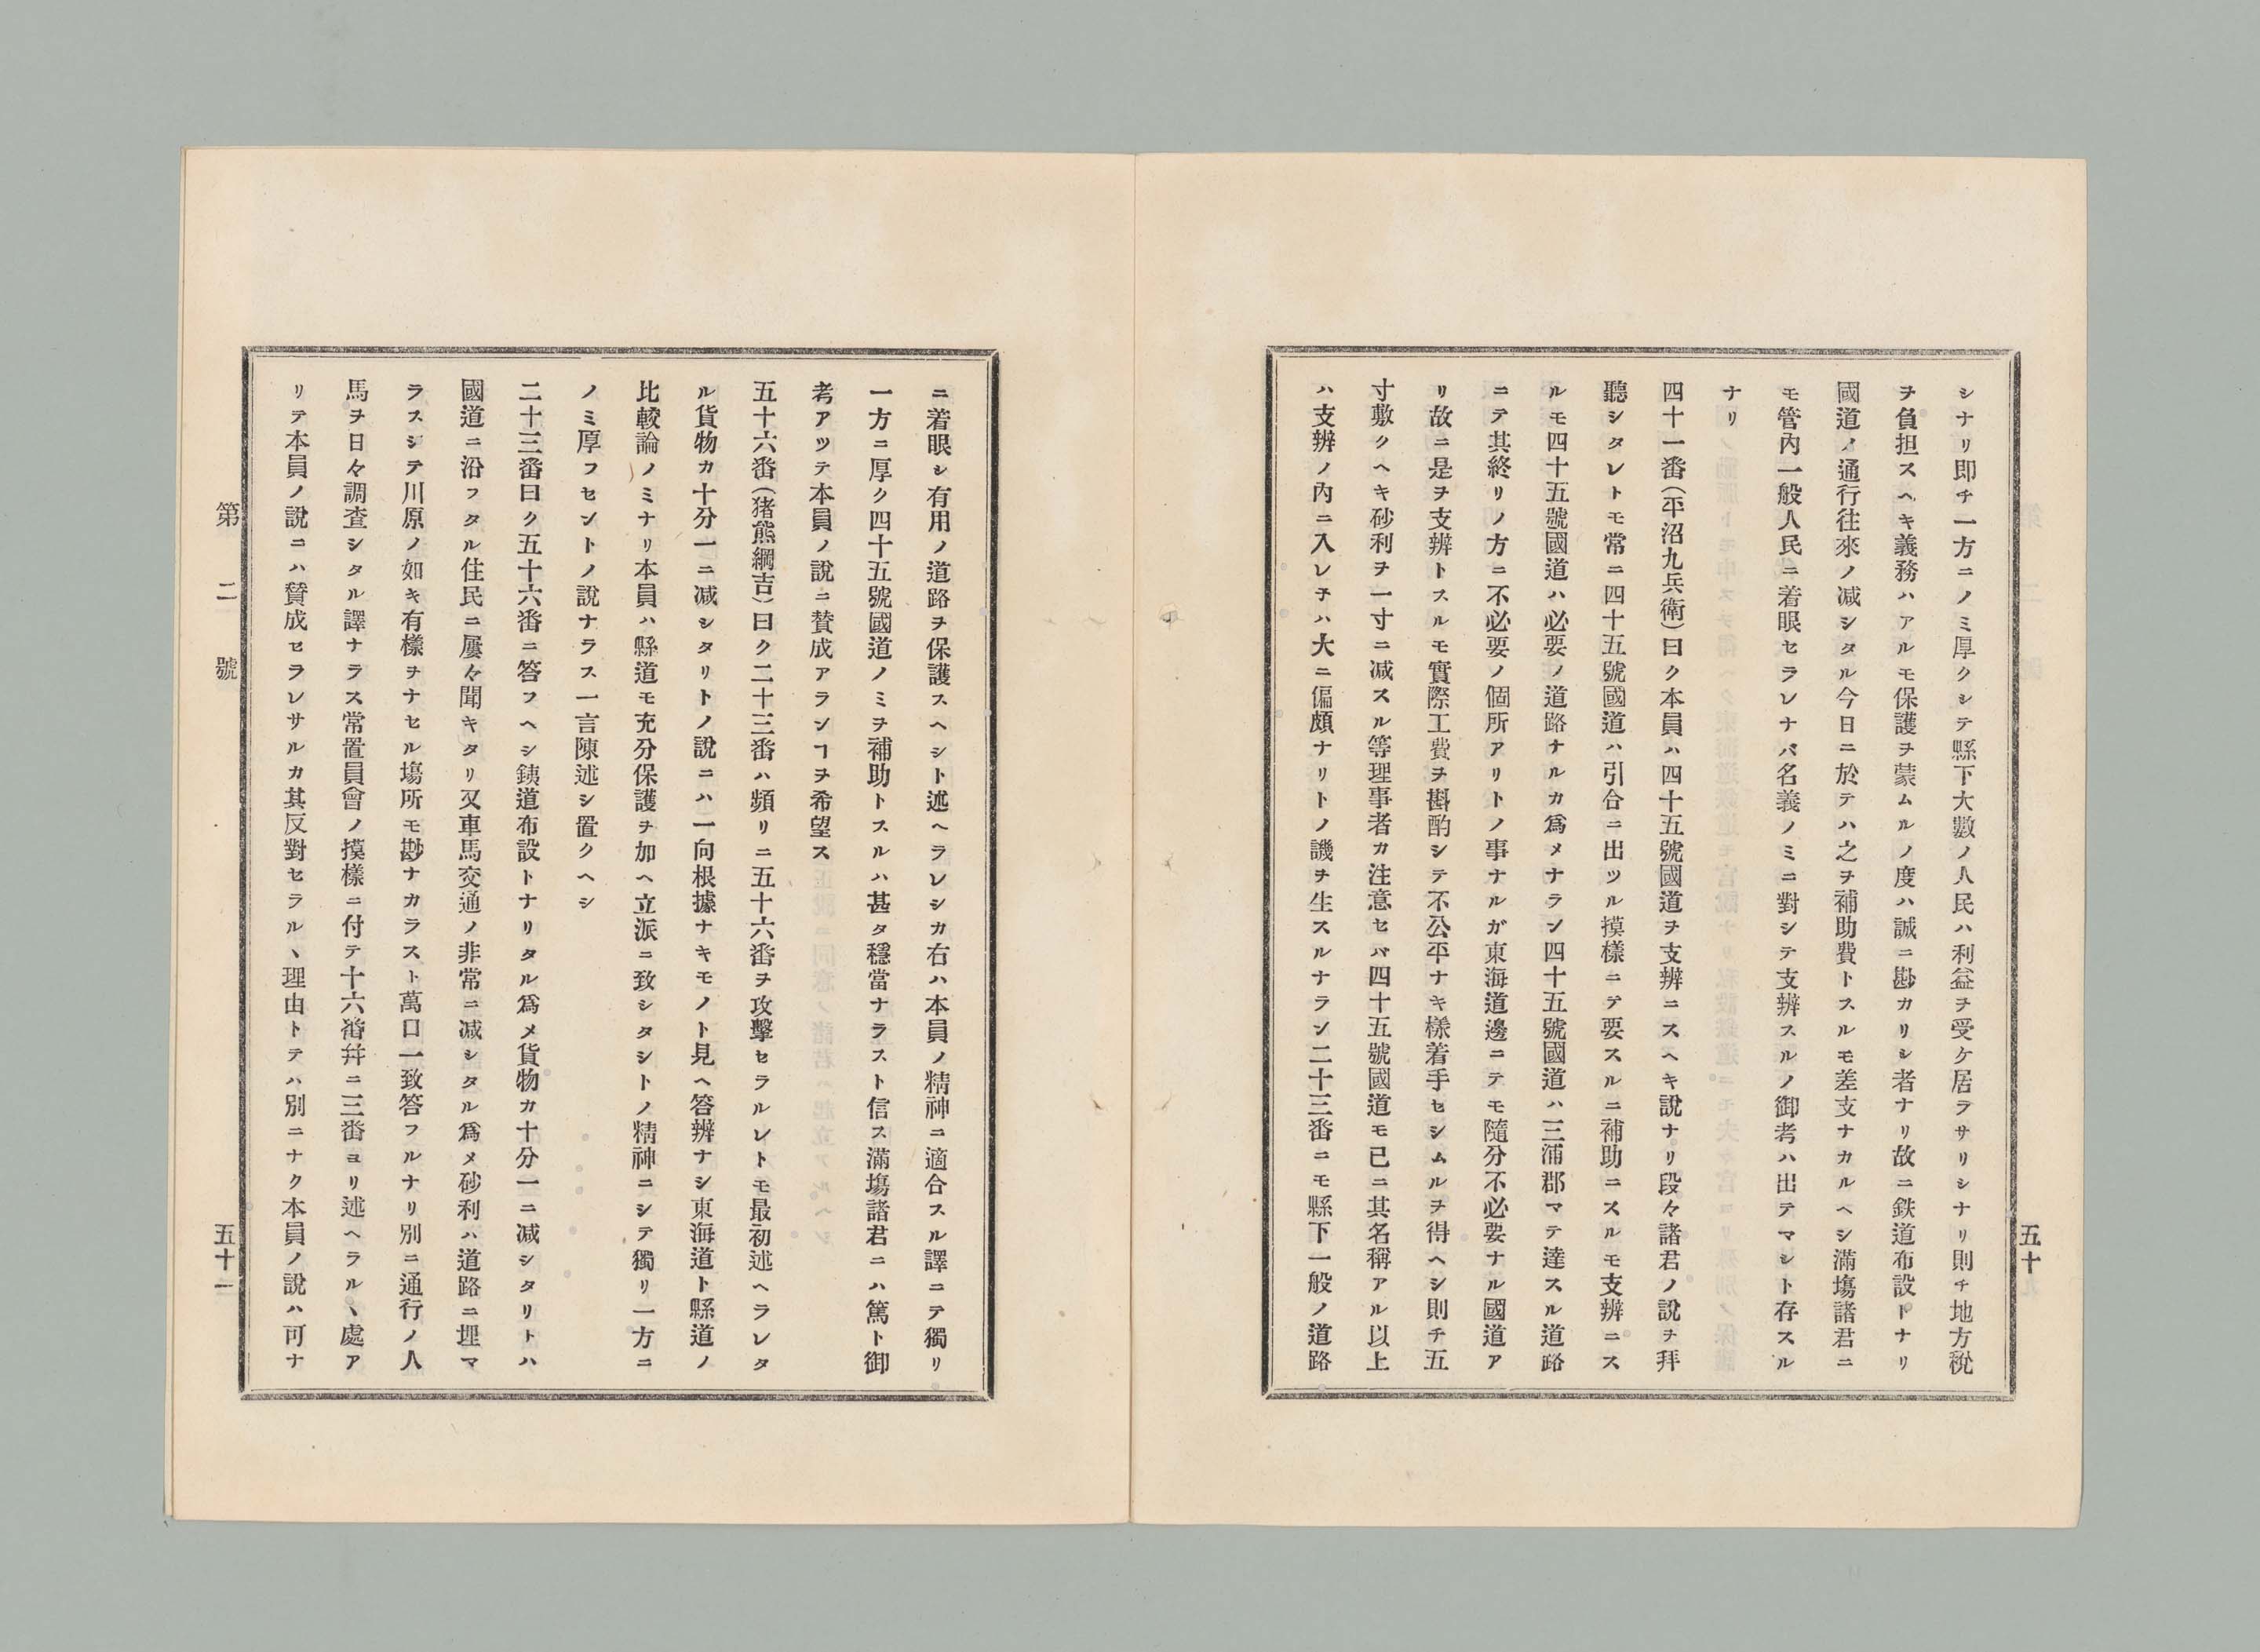 五十
シナリ即チ一方ニノミ厚クシテ縣下大數ノ人民ハ利益ヲ受ケ居ラサリシナリ則チ地方稅
ヲ負担スヘキ義務ハアルモ保護ヲ蒙ムルノ度ハ誠ニ尠カリシ者ナリ故ニ鉄道布設トナリ
國道ノ通行往來ノ减シタル今日ニ於テハ之ヲ補助費トスルモ差支ナカルヘシ滿塲諸君ニ
モ管內一般人民ニ着眼セラレナバ名義ノミニ對シテ支辨スルノ御考ハ出テマシト存スル
ナリ
四十一番(平沼九兵衛)曰ク本員ハ四十五號國道ヲ支辨ニスヘキ說ナリ段々諸君ノ說ヲ拜
聽シタレトモ常ニ四十五號國道ハ引合ニ出ツル摸樣ニテ要スルニ補助ニスルモ支辨ニス
ルモ四十五號國道ハ必要ノ道路ナルカ爲メナラン四十五號國道ハ三浦郡マテ達スル道路
ニテ其終リノ方ニ不必要ノ個所アリトノ事ナルガ東海道邊ニテモ隨分不必要ナル國道ア
リ故ニ是ヲ支辨トスルモ實際工費ヲ斟酌シテ不公平ナキ樣着手セシムルヲ得ヘシ則チ五
寸敷クヘキ砂利ヲ一寸ニ减スル等理事者カ注意セバ四十五號國道モ已ニ其名稱アル以上
ハ支辨ノ內ニ入レヲハ大ニ偏頗ナリトノ譏ヲ生スルナラン二十三番ニモ縣下一般ノ道路
ニ着眼シ有用ノ道路ヲ保護スヘシト述ヘラレシカ右ハ本員ノ精神ニ適合スル譯ニテ獨リ
一方ニ厚ク四十五號國道ノミヲ補助トスルハ甚タ穩當ナラスト信ス滿塲諸君ニハ篤ト御
考アツテ本員ノ說ニ賛成アランヿヲ希望ス
五十六番(猪熊綱吉)曰ク二十三番ハ頻リニ五十六番ヲ攻擊セラルレトモ最初述ヘラレタ
ル貨物カ十分一ニ减シタリトノ說ニハ一向根據ナキモノト見ヘ答辨ナシ東海道ト縣道ノ
比較論ノミナリ本員ハ縣道モ充分保護ヲ加ヘ立派ニ致シタシトノ精神ニシテ獨リ一方ニ
ノミ厚フセントノ說ナラス一言陳述シ置クヘシ
二十三番曰ク五十六番ニ答フヘシ銕道布設トナリタル爲メ貨物カ十分一ニ减シタリトハ
國道ニ沿フタル住民ニ屢々聞キタリ又車馬交通ノ非常ニ减シタル爲メ砂利ハ道路ニ埋マ
ラスシテ川原ノ如キ有樣ヲナセル塲所モ尠ナカラスト萬口一致答フルナリ別ニ通行ノ人
馬ヲ日々調査シタル譯ナラス常置員會ノ摸樣ニ付テ十六番幷ニ三番ヨリ述ヘラルヽ處ア
リテ本員ノ說ニハ賛成セラレサルカ其反對セラルヽ理由トテハ別ニナク本員ノ說ハ可ナ
第二號
五十一